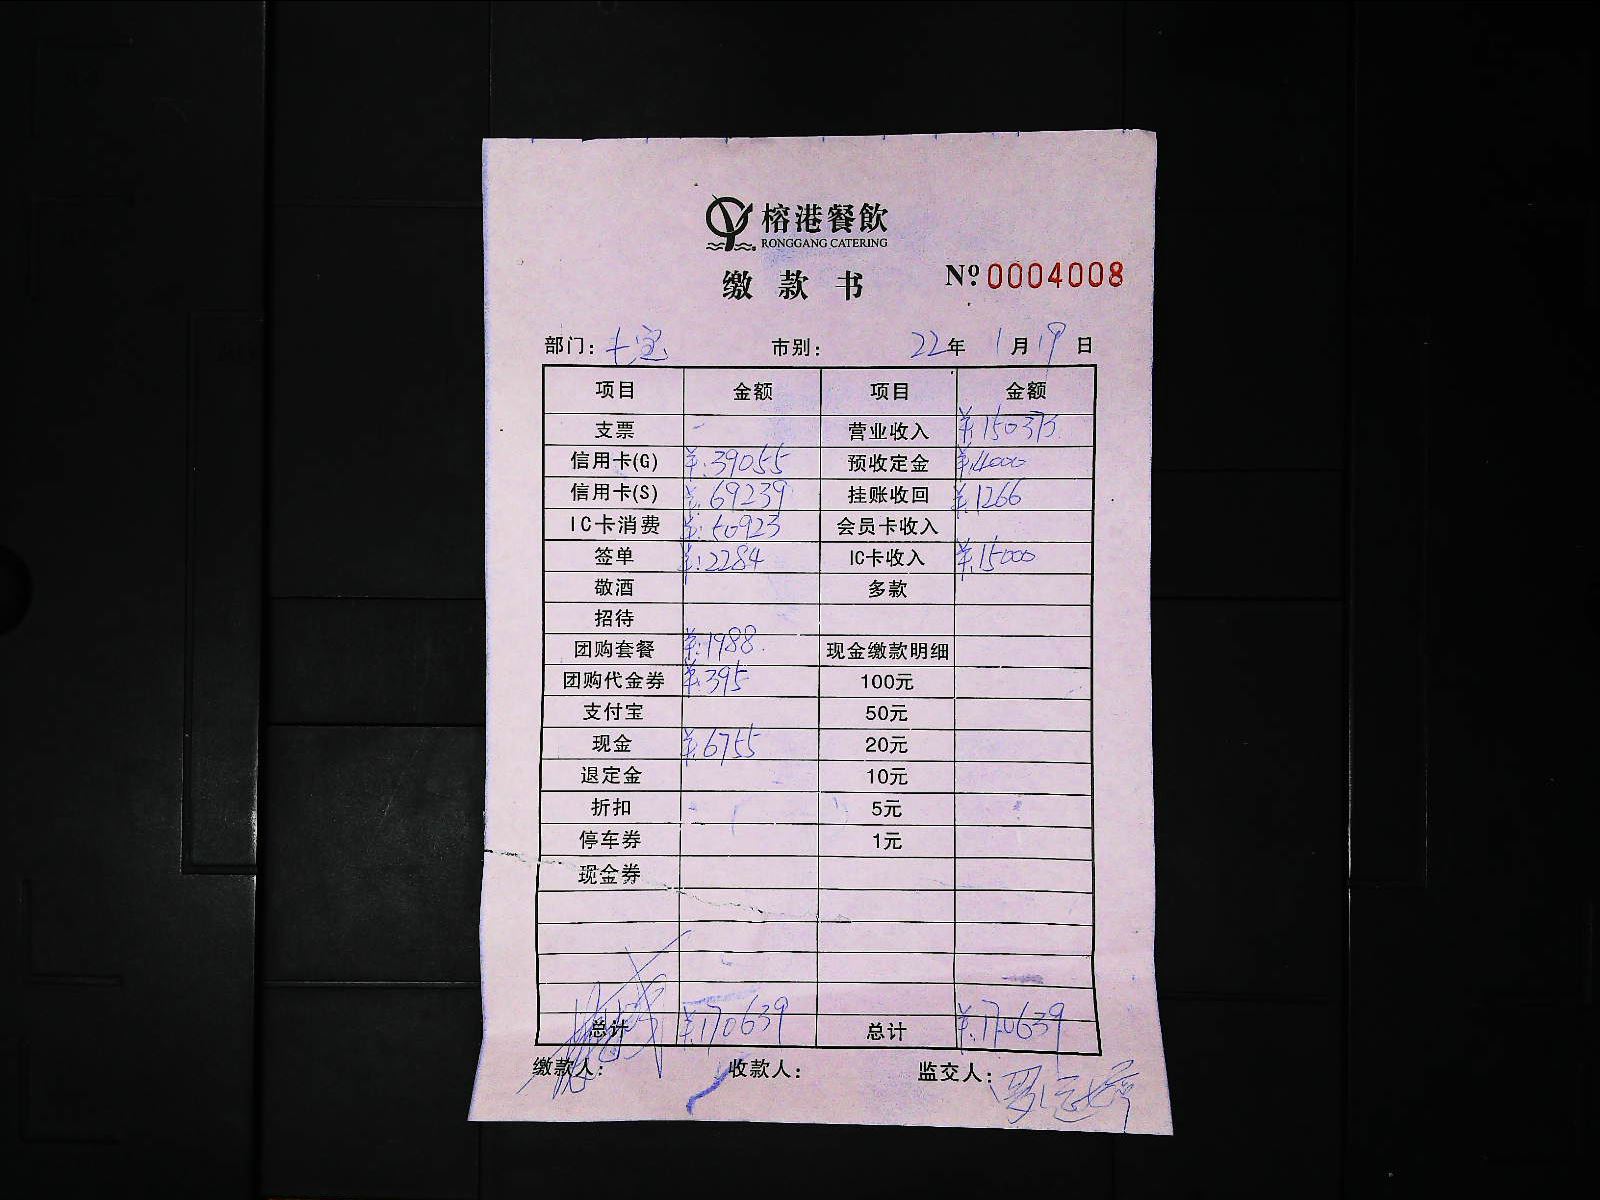 榕港餐飲
RONGGANG CATERING
缴款书 Nº 0004008
部门: 七宝 市别: 22年 1月 19日
项目 金额 项目 金额
支票 - 营业收入 ¥:150373
信用卡(G) ¥:39055 预收定金 ¥:4000
信用卡(S) ¥:69239 挂账收回 ¥:1266
IC卡消费 ¥:50923 会员卡收入
签单 ¥:2284 IC卡收入 ¥:15000
敬酒 多款
招待
团购套餐 ¥:1988. 现金缴款明细
团购代金券 ¥:395 100元
支付宝 50元
现金 ¥:6755 20元
退定金 10元
折扣 5元
停车券 1元
现金券
总计 ¥:170639 总计 ¥:170639
缴款人: 收款人: 监交人: